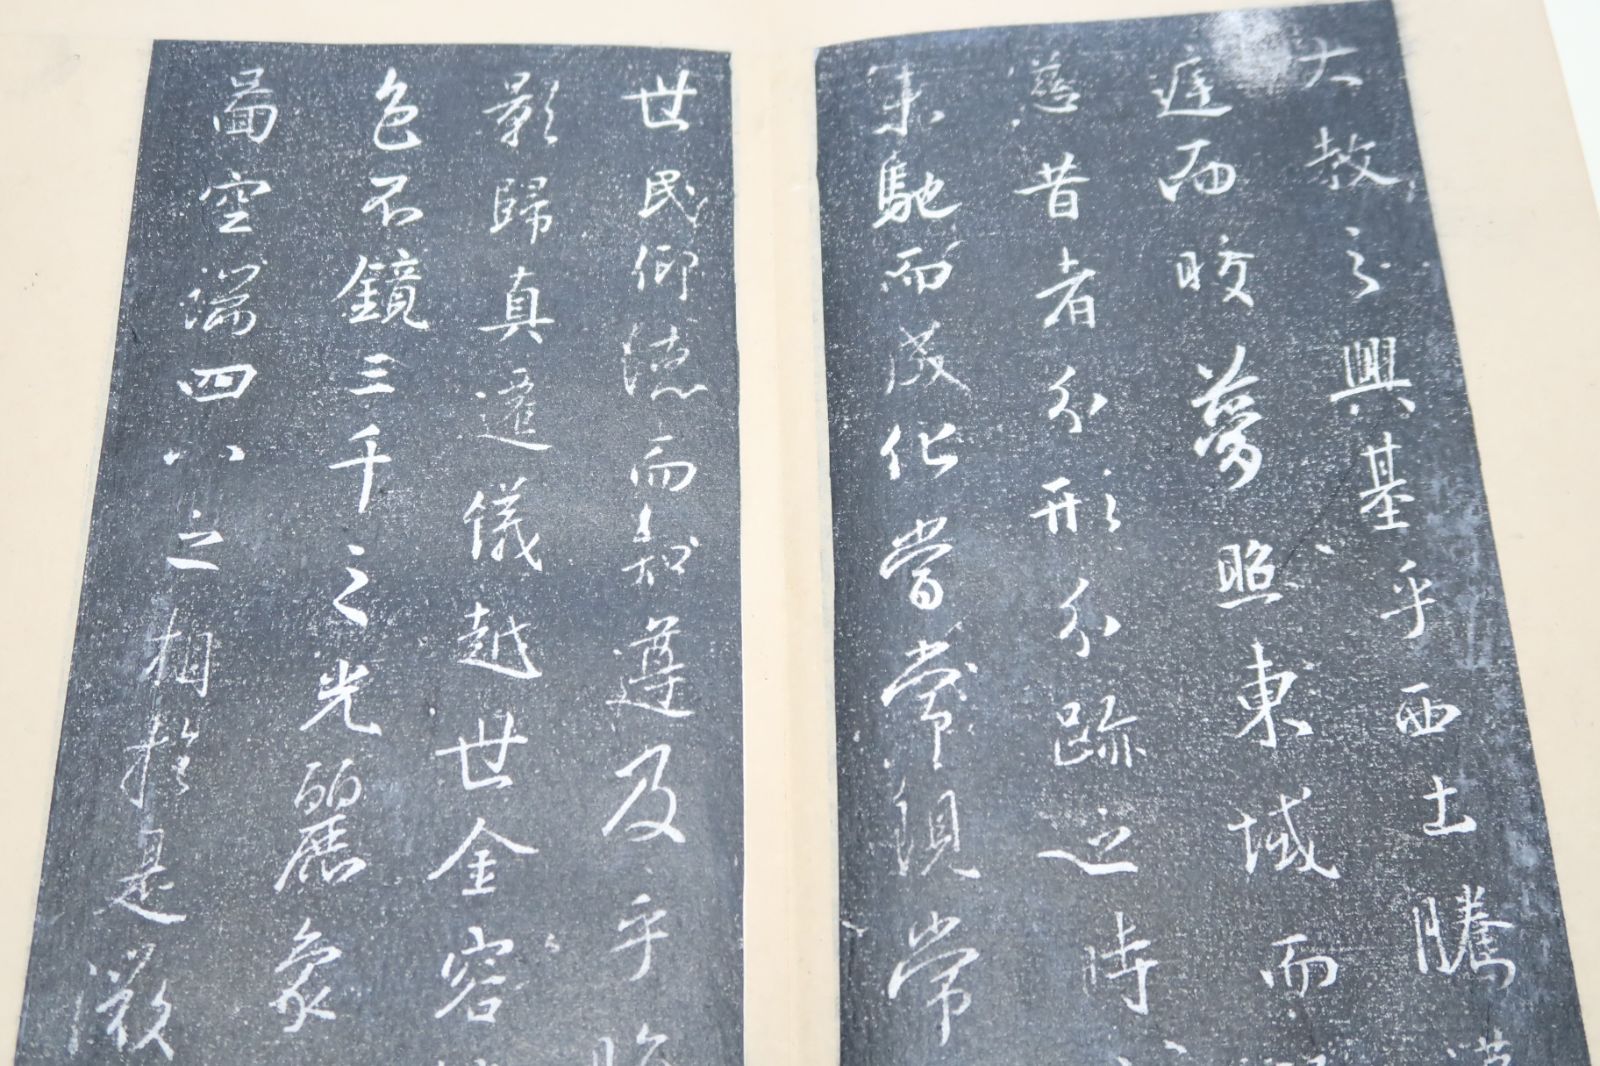 大教之興基乎西土騰漢
庭而皎夢照東域而
慈昔者分形分跡之時言
未馳而成化當常現常
世民仰德而知遵及乎晦
影歸真遷儀越世金容
色不鏡三千之光麗象
圖空端四八之相於是微